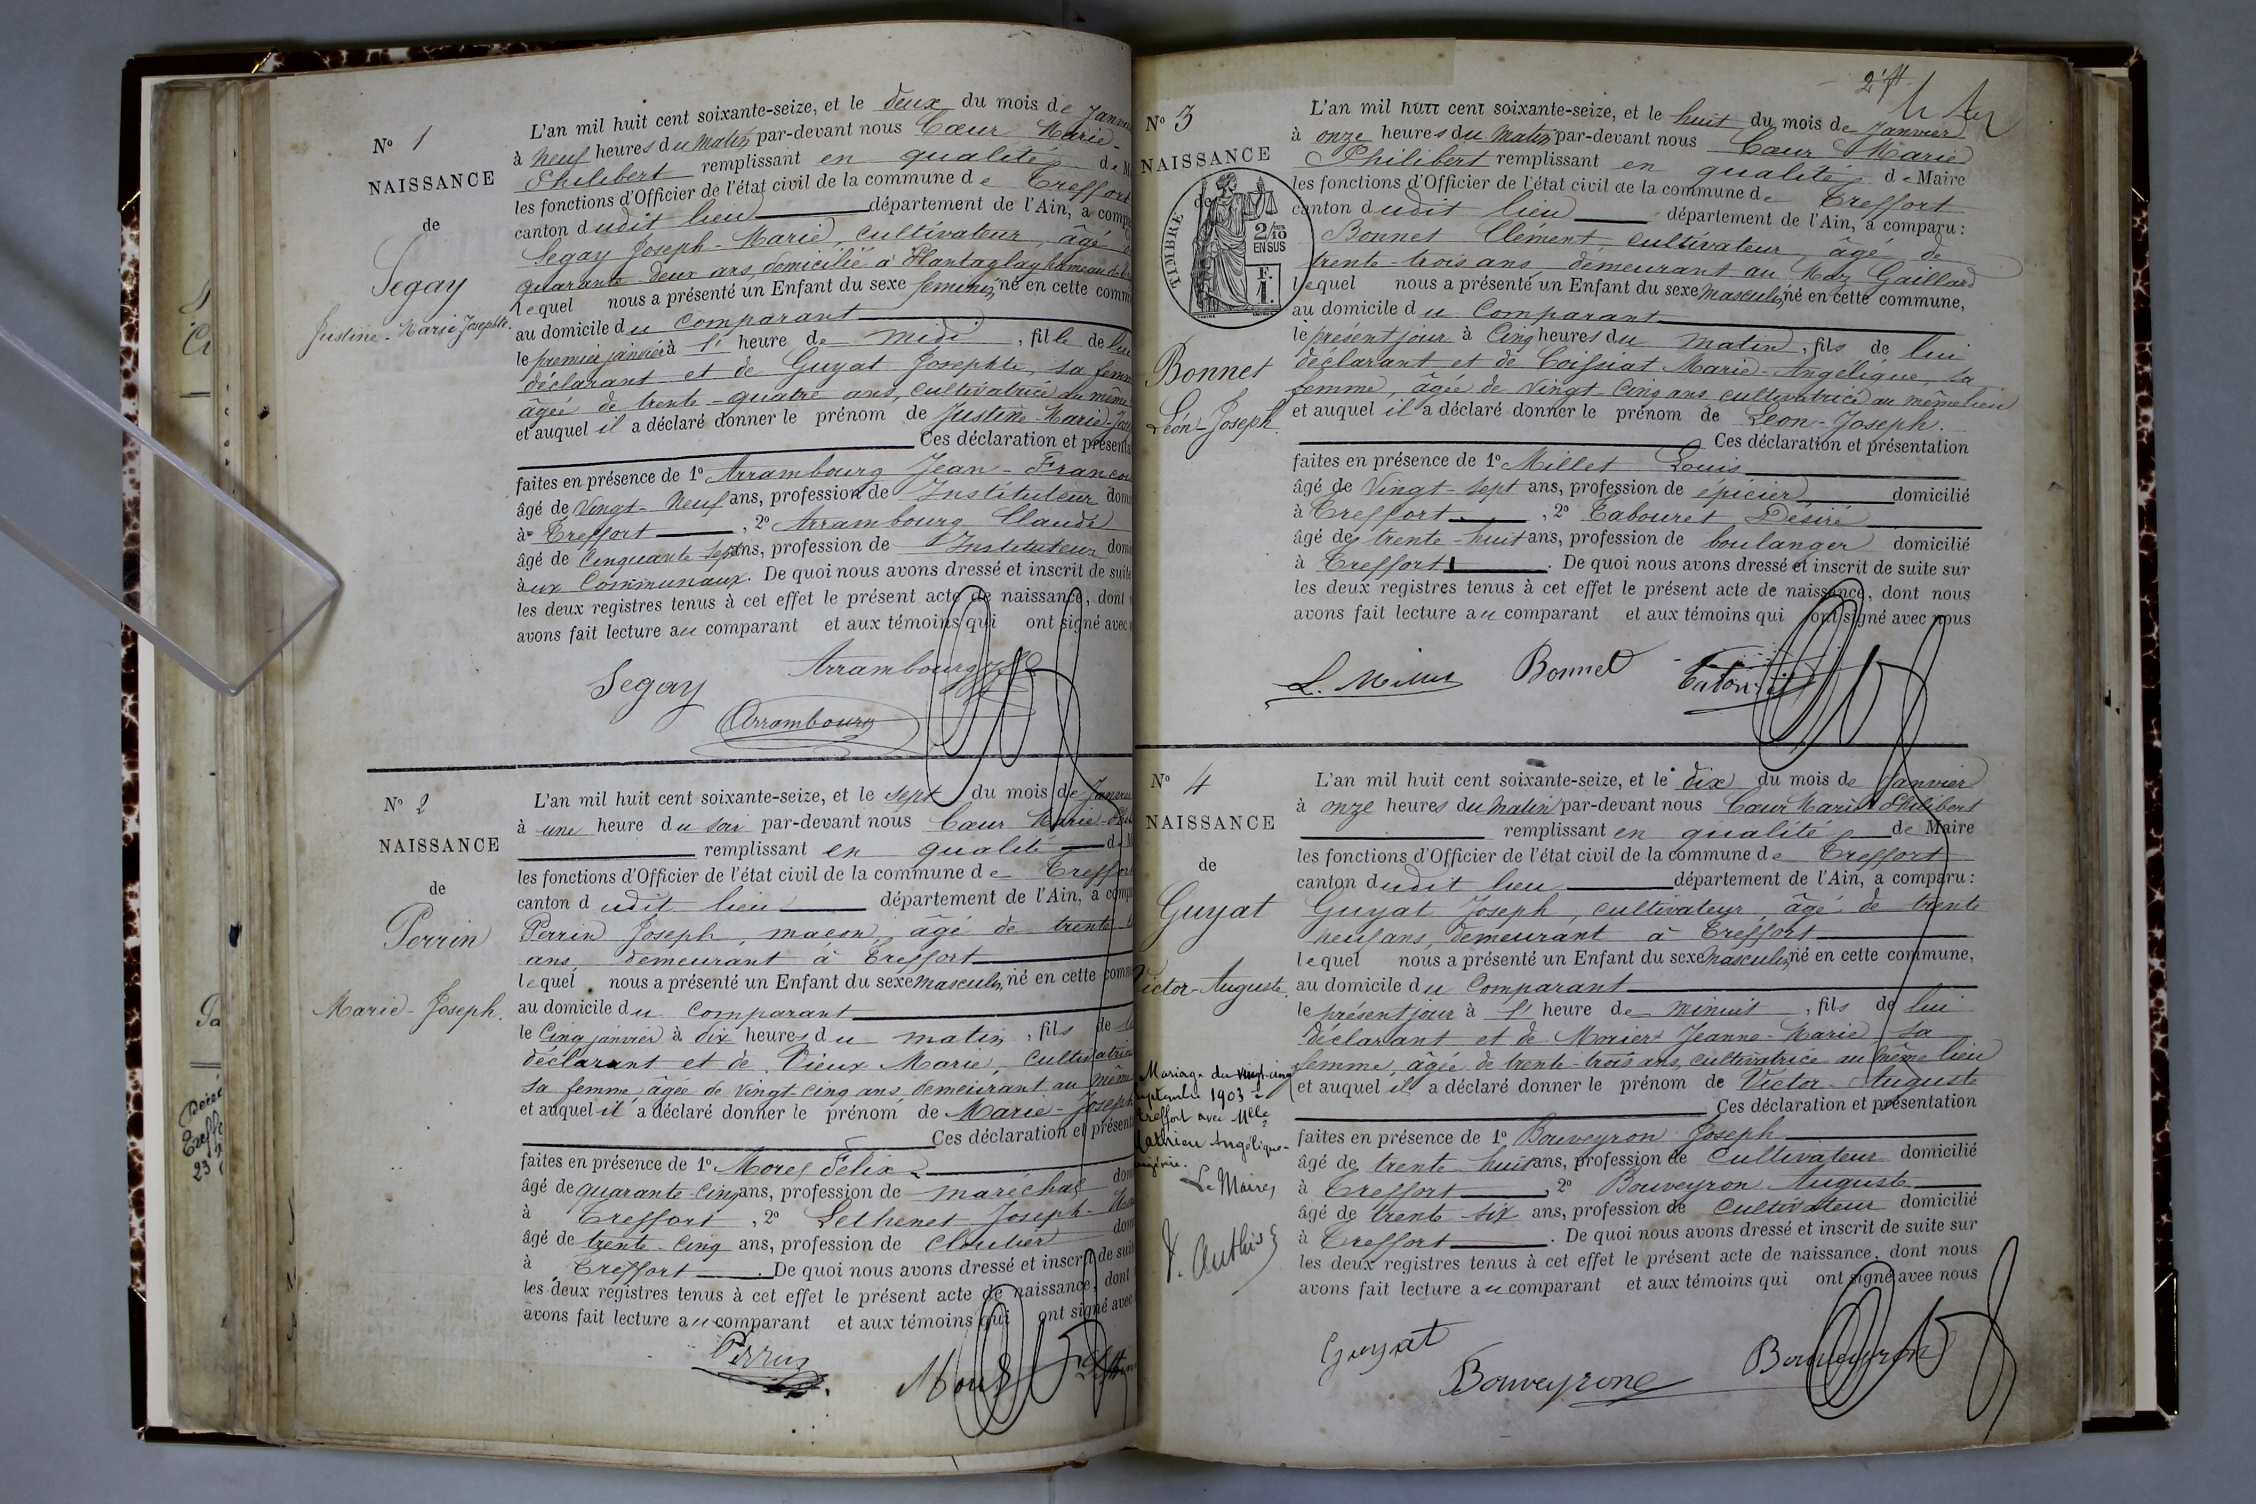 N° 1
NAISSANCE
de
Segay
Justine-Marie Josephte.
L'an mil huit cent soixante-seize, et le deux du mois de Janvier
à neuf heures du matin par-devant nous Cœur Marie-
Philibert remplissant en qualité de M
les fonctions d'Officier de l'état civil de la commune de Treffort
canton dudit lieu département de l'Ain, a comp
Segay Joseph-Marie, cultivateur, âgé
quarante-deux ans, domicilié à
lequel nous a présenté un Enfant du sexe feminin, né en cette comm
au domicile du comparant
le premier janvier à l' heure de midi, fille de lui
déclarant et de Guyat Josephte, sa femme
âgée de trente-quatre ans, cultivatrice au même
et auquel il a déclaré donner le prénom de Justine-Marie-Jose
Ces déclaration et présenta
faites en présence de 1° Arrambourg Jean-Francois
âgé de vingt-neuf ans, profession de Instituteur dom
à Treffort, 2° Arrambourg Claude
âgé de cinquante-sept ans, profession de Instituteur dom
àux Communaux. De quoi nous avons dressé et inscrit de suite
les deux registres tenus à cet effet le présent acte de naissance, dont
avons fait lecture au comparant et aux témoins qui ont signé avec
Segay Arrambourg
Arrambourg
N° 2
NAISSANCE
de
Perrin
Marie-Joseph.
L'an mil huit cent soixante-seize, et le sept du mois de Janvier
à une heure du soir par-devant nous Cœur Marie-
remplissant en qualité de M
les fonctions d'Officier de l'état civil de la commune de Treffort
canton dudit lieu département de l'Ain, a comp
Perrin Joseph, macon, âgé de trente
ans, demeurant à Treffort
lequel nous a présenté un Enfant du sexe masculin, né en cette comm
au domicile du comparant
le cinq janvier à dix heures du matin, fils de
déclarant et de Vieux Marie, cultivatrice
sa femme âgée de vingt-cinq ans, demeurant au même
et auquel il a déclaré donner le prénom de Marie-Joseph
Ces déclaration et présent
faites en présence de 1° Morel Félix
âgé de quarante-cinq ans, profession de maréchal dom
à Treffort, 2° Lethenet Joseph-
âgé de trente-cinq ans, profession de cloutier dom
à Treffort. De quoi nous avons dressé et inscrit de suit
les deux registres tenus à cet effet le présent acte de naissance, dont
avons fait lecture au comparant et aux témoins qui ont signé avec
Perrin
Morel
2e ft
N° 3
NAISSANCE
de
TIMBRE
2/10
EN SUS
F.
1.
Bonnet
Léon-Joseph
L'an mil huit cent soixante-seize, et le huit du mois de Janvier
à onze heures du matin par-devant nous Cœur Marie
Philibert remplissant en qualité de Maire
les fonctions d'Officier de l'état civil de la commune de Treffort
canton dudit lieu département de l'Ain, a comparu:
Bonnet Clément, cultivateur, âgé de
trente-trois ans, demeurant au Gaillard
lequel nous a présenté un Enfant du sexe masculin, né en cette commune,
au domicile du comparant
le présent jour à cinq heures du matin, fils de lui
déclarant et de Coissiat Marie-Angélique, sa
femme, âgée de vingt-cinq ans, cultivatrice au même lieu
et auquel il a déclaré donner le prénom de Léon-Joseph.
Ces déclaration et présentation
faites en présence de 1° Millet Louis
âgé de vingt-sept ans, profession de épicier domicilié
à Treffort, 2° Tabouret Désiré
âgé de trente-huit ans, profession de boulanger domicilié
à Treffort. De quoi nous avons dressé et inscrit de suite sur
les deux registres tenus à cet effet le présent acte de naissance, dont nous
avons fait lecture au comparant et aux témoins qui ont signé avec nous
L. Millet Bonnet Tabouret
N° 4
NAISSANCE
de
Guyat
Victor-Auguste.
Mariage du vingt-cinq
septembre 1903 à
Treffort avec Mlle
Mathieu Angélique-
Le Maire,
L'an mil huit cent soixante-seize, et le dix du mois de Janvier
à onze heures du matin par-devant nous Cœur Marie Philibert
remplissant en qualité de Maire
les fonctions d'Officier de l'état civil de la commune de Treffort
canton dudit lieu département de l'Ain, a comparu:
Guyat Joseph, cultivateur, âgé de trente
neuf ans, demeurant à Treffort
lequel nous a présenté un Enfant du sexe masculin, né en cette commune,
au domicile du comparant
le présent jour à l' heure de minuit, fils de lui
déclarant et de Morier Jeanne-Marie, sa
femme, âgée de trente-trois ans, cultivatrice au même lieu
et auquel il a déclaré donner le prénom de Victor-Auguste
Ces déclaration et présentation
faites en présence de 1° Bouveyron Joseph
âgé de trente huit ans, profession de cultivateur domicilié
à Treffort, 2° Bouveyron Auguste
âgé de trente-six ans, profession de cultivateur domicilié
à Treffort. De quoi nous avons dressé et inscrit de suite sur
les deux registres tenus à cet effet le présent acte de naissance, dont nous
avons fait lecture au comparant et aux témoins qui ont signé avec nous
Guyat
Bouveyron Bouveyron